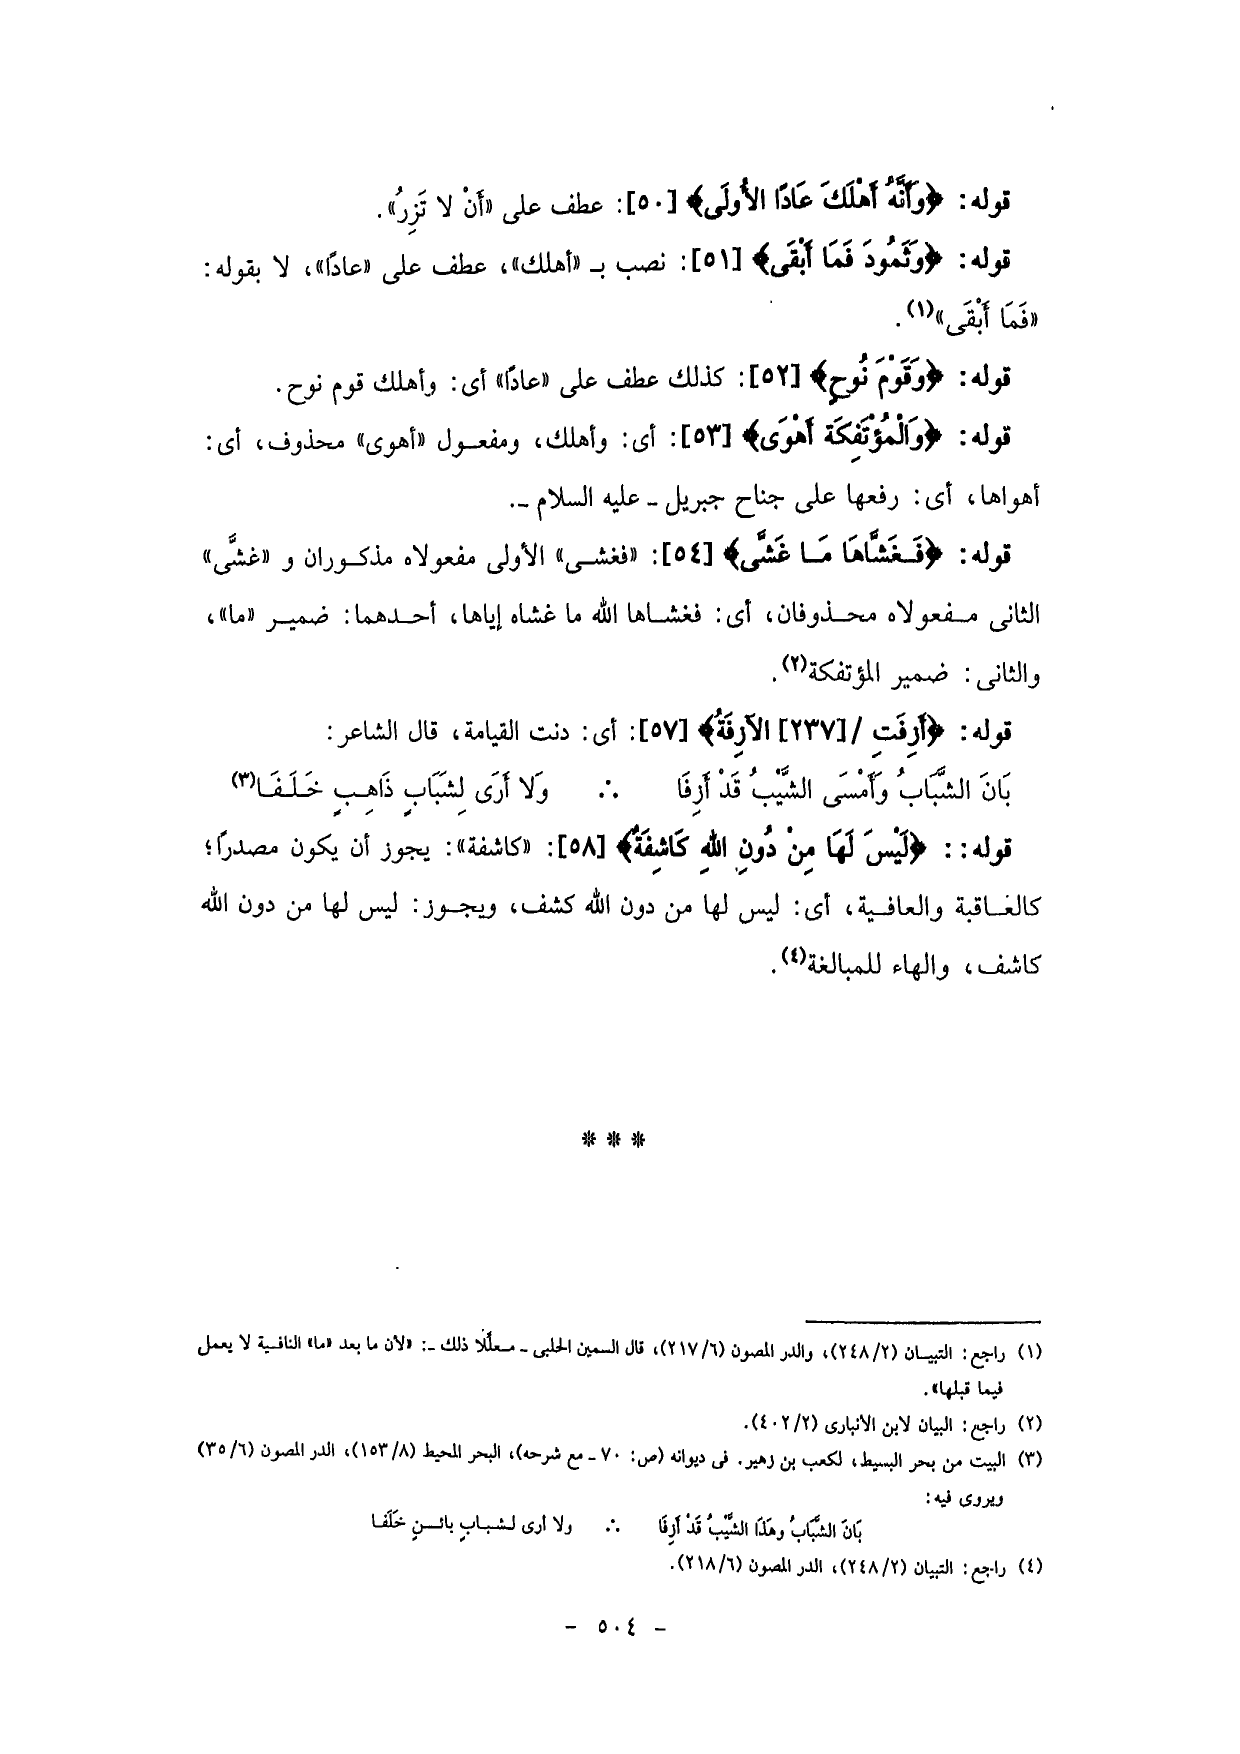 قوله: ﴿وَأَنَّهُ أَهْلَكَ عَادًا الأُولَى﴾ [٥٠]: عطف على «أَنْ لا تَزِرُ».
قوله: ﴿وَثَمُودَ فَمَا أَبْقَى﴾ [٥١]: نصب بـ «أهلك»، عطف على «عادًا»، لا بقوله:
«فَمَا أَبْقَى»(١).
قوله: ﴿وَقَوْمَ نُوحٍ﴾ [٥٢]: كذلك عطف على «عادًا» أى: وأهلك قوم نوح.
قوله: ﴿وَالْمُؤْتَفِكَةَ أَهْوَى﴾ [٥٣]: أى: وأهلك، ومفعول «أهوى» محذوف، أى:
أهواها، أى: رفعها على جناح جبريل ـ عليه السلام ـ.
قوله: ﴿فَغَشَّاهَا مَا غَشَّى﴾ [٥٤]: «فغشى» الأولى مفعولاه مذكوران و «غشَّى»
الثانى مفعولاه محذوفان، أى: فغشاها الله ما غشاه إياها، أحدهما: ضمير «ما»،
والثانى: ضمير المؤتفكة(٢).
قوله: ﴿أَزِفَتِ /[٢٣٧] الآزِفَةُ﴾ [٥٧]: أى: دنت القيامة، قال الشاعر:
بَانَ الشَّبَابُ وَأَمْسَى الشَّيْبُ قَدْ أَزِفَا ∴ وَلا أَرَى لِشَبَابٍ ذَاهِبٍ خَلَفَا(٣)
قوله: : ﴿لَيْسَ لَهَا مِنْ دُونِ اللهِ كَاشِفَةٌ﴾ [٥٨]: «كاشفة»: يجوز أن يكون مصدرًا؛
كالعاقبة والعافية، أى: ليس لها من دون الله كشف، ويجوز: ليس لها من دون الله
كاشف، والهاء للمبالغة(٤).
* * *
(١) راجع: التبيان (٢٤٨/٢)، والدر المصون (٢١٧/٦)، قال السمين الحلبى ـ معلِّلا ذلك ـ: «لأن ما بعد «ما» النافية لا يعمل
فيما قبلها».
(٢) راجع: البيان لابن الأنبارى (٤٠٢/٢).
(٣) البيت من بحر البسيط، لكعب بن زهير. فى ديوانه (ص: ٧٠ ـ مع شرحه)، البحر المحيط (١٥٣/٨)، الدر المصون (٣٥/٦)
ويروى فيه:
بَانَ الشَّبَابُ وهَذَا الشَّيْبُ قَدْ أَزِفَا ∴ ولا أرى لشبابٍ بائنٍ خَلَفا
(٤) راجع: التبيان (٢٤٨/٢)، الدر المصون (٢١٨/٦).
- ٥٠٤ -